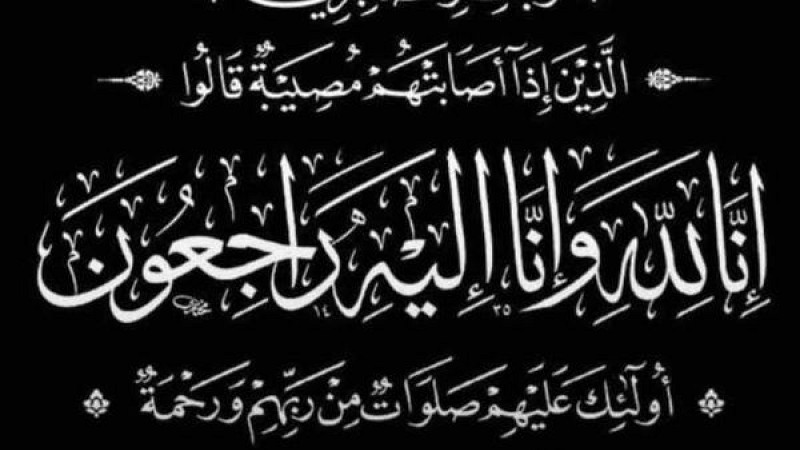 الَّذِيْنَ إِذَآ أَصَابَتْهُمْ مُصِيْبَةٌ قَالُوا
إِنَّا لِلّٰهِ وَإِنَّا إِلَيْهِ رَاجِعُوْنَ
١٤ ٣٥
أُولٰٓئِكَ عَلَيْهِمْ صَلَوَاتٌ مِنْ رَبِّهِمْ وَرَحْمَةٌ